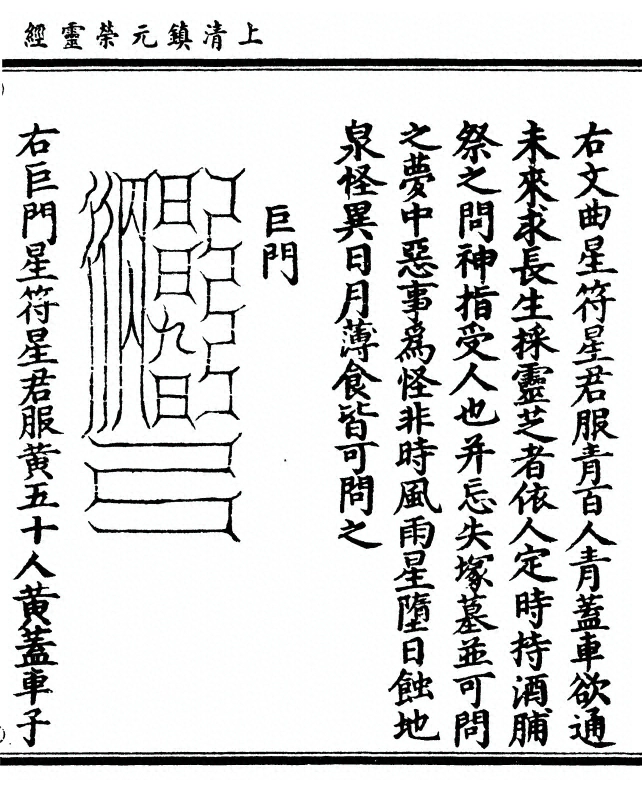 上清鎮元榮靈經
右文曲星符星君服青百人青蓋車欲通
未來求長生採靈芝者依人定時持酒脯
祭之問神指受人也并忘失塚墓並可問
之夢中惡事為怪非時風雨星墮日蝕地
泉怪異日月薄食皆可問之
巨門
右巨門星符星君服黃五十人黃蓋車子